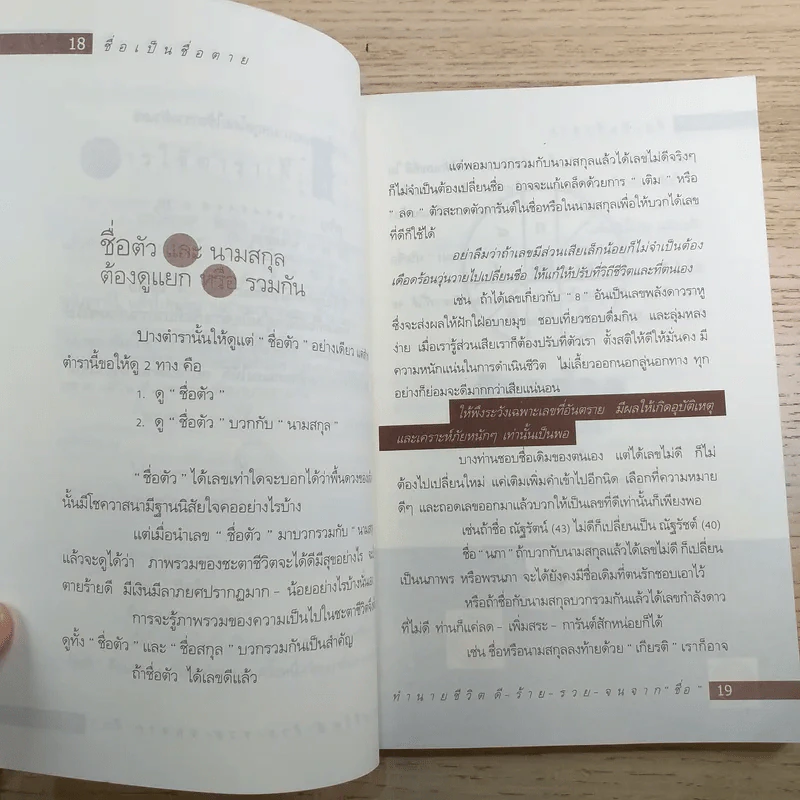 18 ชื่อเป็นชื่อตาย
ชื่อตัว และ นามสกุล
ต้องดูแยก หรือ รวมกัน
บางตำรานั้นให้ดูแต่ “ ชื่อตัว ” อย่างเดียว
ตำรานี้ขอให้ดู 2 ทาง คือ
1. ดู “ ชื่อตัว ”
2. ดู “ ชื่อตัว ” บวกกับ “ นามสกุล ”
“ ชื่อตัว ” ได้เลขเท่าใดจะบอกได้ว่าพื้นดวงของ
นั้นมีโชควาสนามีฐานนิสัยใจคออย่างไรบ้าง
แต่เมื่อนำเลข “ ชื่อตัว ” มาบวกรวมกับ “
แล้วจะดูได้ว่า ภาพรวมของชะตาชีวิตจะได้ดีมีสุขอย่างไร
ตายร้ายดี มีเงินมีลาภยศปรากฏมาก – น้อยอย่างไรบ้าง
การจะรู้ภาพรวมของความเป็นไปในชะตาชีวิต
ดูทั้ง “ ชื่อตัว ” และ “ ชื่อสกุล ” บวกรวมกันเป็นสำคัญ
ถ้าชื่อตัว ได้เลขดีแล้ว
แต่พอมาบวกรวมกับนามสกุลแล้วได้เลขไม่ดีจริงๆ
ก็ไม่จำเป็นต้องเปลี่ยนชื่อ อาจจะแก้เคล็ดด้วยการ “ เติม ” หรือ
“ ลด ” ตัวสะกดตัวการันต์ในชื่อหรือในนามสกุลเพื่อให้บวกได้เลข
ที่ดีก็ใช้ได้
อย่าลืมว่าถ้าเลขมีส่วนเสียเล็กน้อยก็ไม่จำเป็นต้อง
เดือดร้อนวุ่นวายไปเปลี่ยนชื่อ ให้แก้ให้ปรับที่วิถีชีวิตและที่ตนเอง
เช่น ถ้าได้เลขเกี่ยวกับ “ 8 ” อันเป็นเลขพลังดาวราหู
ซึ่งจะส่งผลให้ฝักใฝ่อบายมุข ชอบเที่ยวชอบดื่มกิน และลุ่มหลง
ง่าย เมื่อเรารู้ส่วนเสียเราก็ต้องปรับที่ตัวเรา ตั้งสติให้ดีให้มั่นคง มี
ความหนักแน่นในการดำเนินชีวิต ไม่เลี้ยวออกนอกลู่นอกทาง ทุก
อย่างก็ย่อมจะดีมากกว่าเสียแน่นอน
ให้พึงระวังเฉพาะเลขที่อันตราย มีผลให้เกิดอุบัติเหตุ
และเคราะห์ภัยหนักๆ เท่านั้นเป็นพอ
บางท่านชอบชื่อเดิมของตนเอง แต่ได้เลขไม่ดี ก็ไม่
ต้องไปเปลี่ยนใหม่ แค่เติมเพิ่มคำเข้าไปอีกนิด เลือกที่ความหมาย
ดีๆ และถอดเลขออกมาแล้วบวกให้เป็นเลขที่ดีเท่านั้นก็เพียงพอ
เช่นถ้าชื่อ ณัฐรัตน์ (43) ไม่ดีก็เปลี่ยนเป็น ณัฐรัชต์ (40)
ชื่อ “ นภา ” ถ้าบวกกับนามสกุลแล้วได้เลขไม่ดี ก็เปลี่ยน
เป็นนภาพร หรือพรนภา จะได้ยังคงมีชื่อเดิมที่ตนรักชอบเอาไว้
หรือถ้าชื่อกับนามสกุลบวกรวมกันแล้วได้เลขกำลังดาว
ที่ไม่ดี ท่านก็แค่ลด – เพิ่มสระ – การันต์สักหน่อยก็ได้
เช่น ชื่อหรือนามสกุลลงท้ายด้วย “ เกียรติ ” เราก็อาจ
ทำนายชีวิต ดี–ร้าย–รวย–จนจาก“ชื่อ” 19